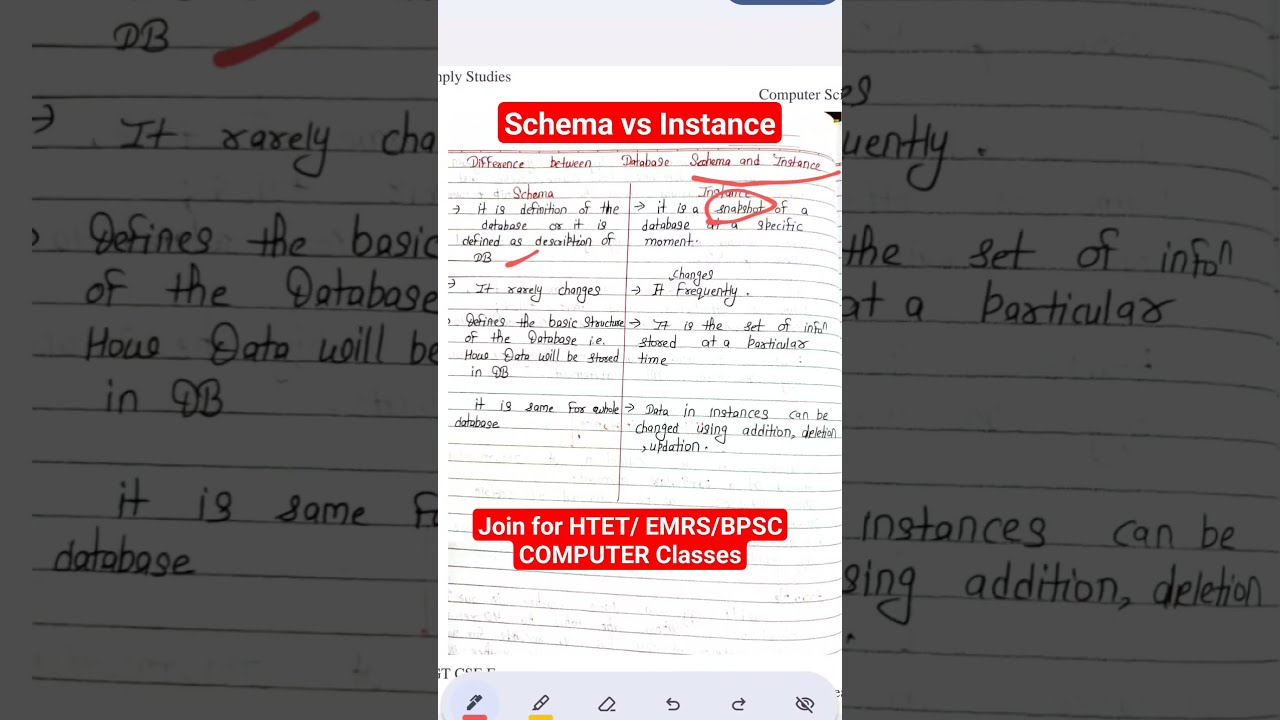 mply Studies
Computer Sci
Schema vs Instance
Difference between Database Seahema and Instance
Schema
→ It is definition of the
database or it is
defined as description of
DB
→ It rarely changes
Defines the basic structure
of the Database i.e.
How Data will be stored
in DB
it is same for whole
database
Instance
→ it is a snapshot of a
database at a specific
moment.
changes
→ It Frequently.
→ It is the set of infoⁿ
stored at a particular
time
→ Data in instances can be
changed using addition, deletion
, updation.
Join for HTET/ EMRS/BPSC
COMPUTER Classes
DB
→ It rarely cha
Defines the basic
of the Database
How Data will be
in DB
it is same F
database
es
uently.
the set of infoⁿ
at a particular
instances can be
sing addition, deletion